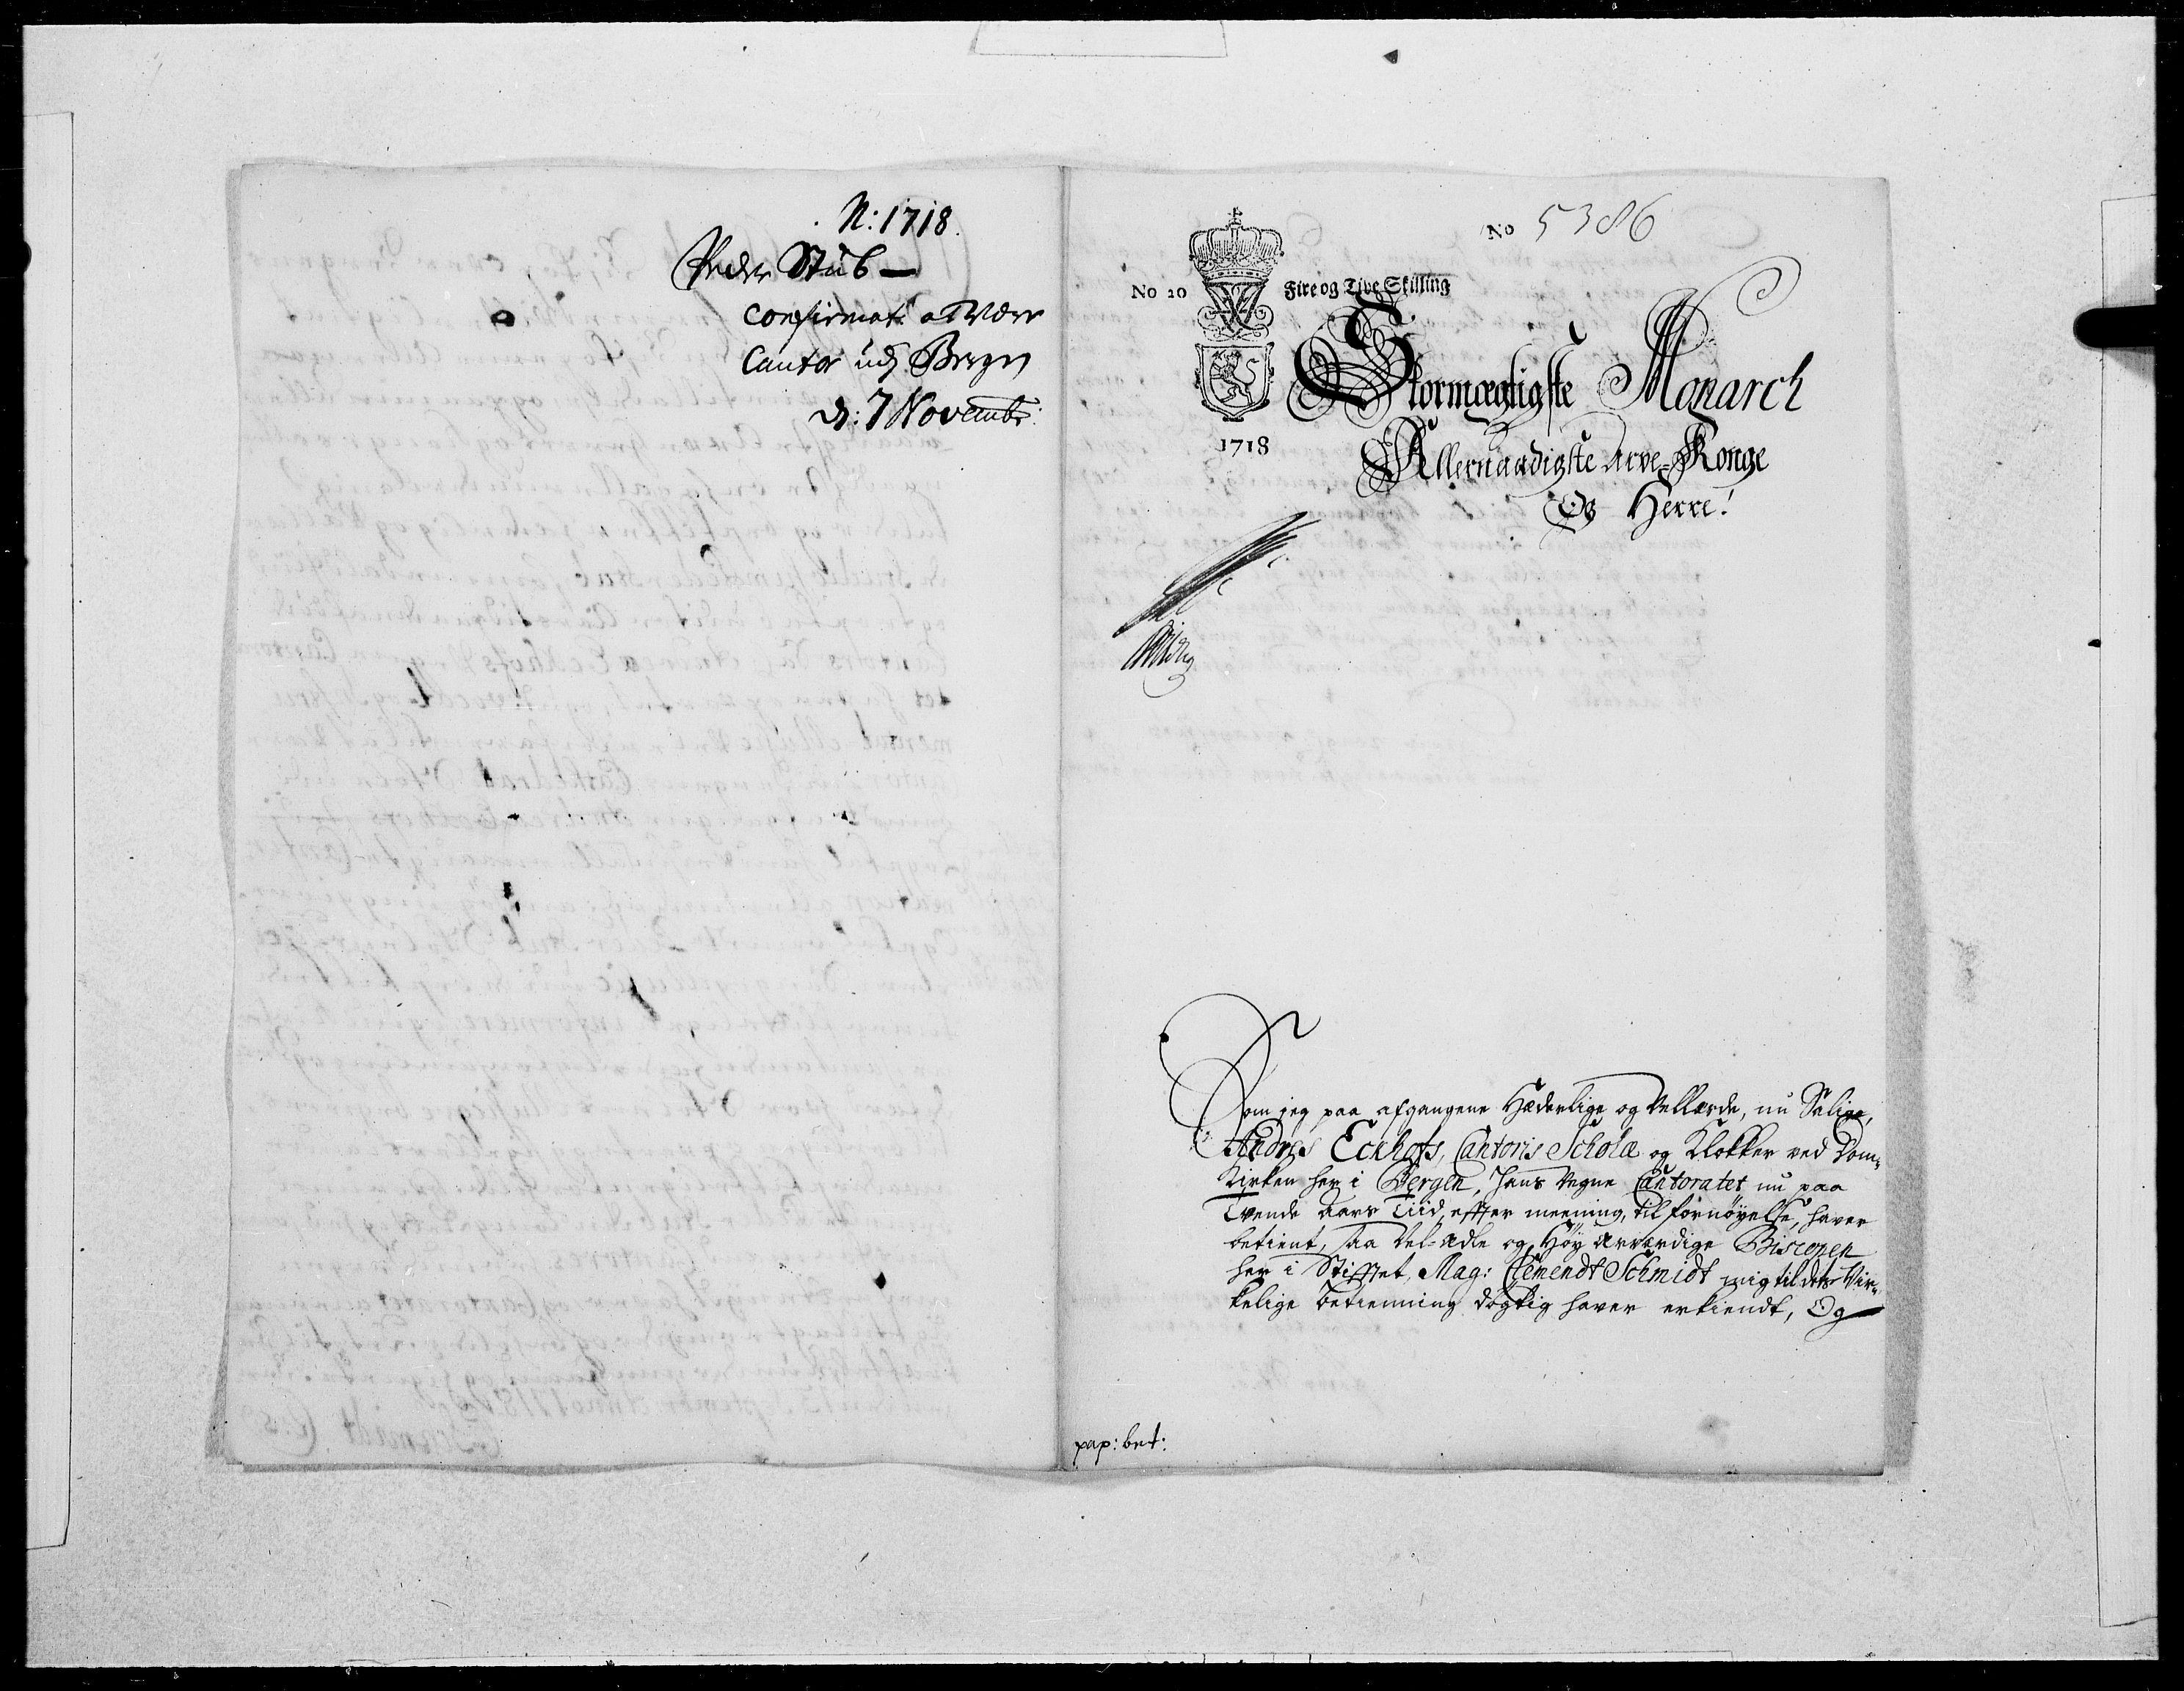 N: 1718.
Peder Stub
confirmat: at være
Cantor udj Bergen
d: 7 Novembr:
No 5386
No 20
Fire og Tive Skilling
1718
Stormægtigste Monarch
Allernaadigste Arve-Konge
Og Herre!
Som jeg paa afgangene Hæderlige og Vellærde, nu Salige,
Andres Eckhofs, Cantoris Scholæ og Klokker ved Dom-
Kirken her i Bergen, Hans Vegne Cantoratet nu paa
Tvende Aars Tiid, effter meening, til fornøyelse, haver
betient, saa Vel-Adle og Høy Ærværdige Biscopen
her i Stifftet, Mag: Clemendt Schmidt mig til dets Vir-
kelige betienning døgtig haver erkiendt, Og
pap: bet: